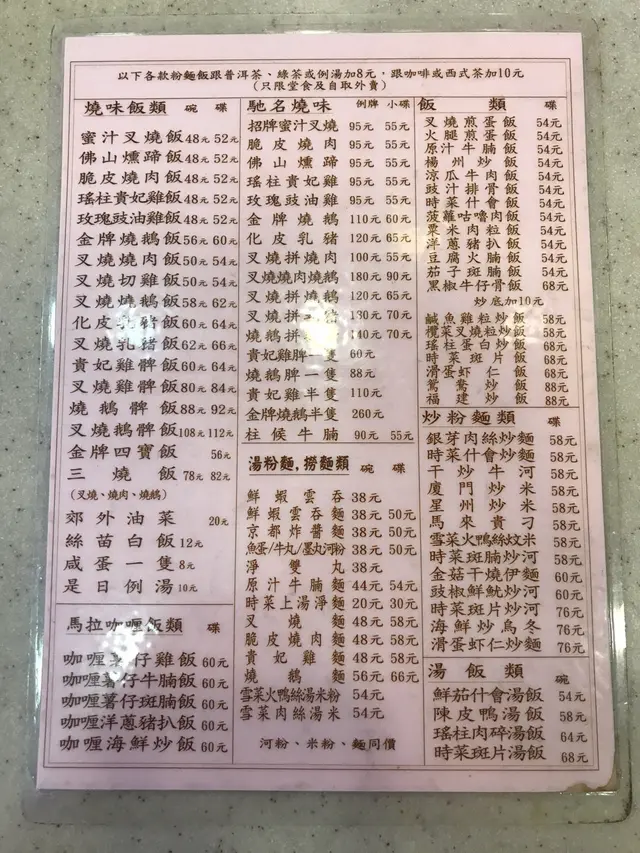 以下各款粉麵飯跟普洱茶、綠茶或例湯加8元，跟咖啡或西式茶加10元
(只限堂食及自取外賣)
燒味飯類 碗 碟
蜜汁叉燒飯 48元 52元
佛山燻蹄飯 48元 52元
脆皮燒肉飯 48元 52元
瑤柱貴妃雞飯 48元 52元
玫瑰豉油雞飯 48元 52元
金牌燒鵝飯 56元 60元
叉燒燒肉飯 50元 54元
叉燒切雞飯 50元 54元
叉燒燒鵝飯 58元 62元
化皮乳豬飯 60元 64元
叉燒乳豬飯 62元 66元
貴妃雞髀飯 60元 64元
叉燒雞髀飯 80元 84元
燒鵝髀飯 88元 92元
叉燒鵝髀飯 108元 112元
金牌四寶飯 56元
三燒飯 78元 82元
(叉燒、燒肉、燒鵝)
郊外油菜 20元
絲苗白飯 12元
咸蛋一隻 8元
是日例湯 10元
馬拉咖喱飯類 碟
咖喱薯仔雞飯 60元
咖喱薯仔牛腩飯 60元
咖喱薯仔斑腩飯 60元
咖喱洋蔥豬扒飯 60元
咖喱海鮮炒飯 60元
馳名燒味 例牌 小碟
招牌蜜汁叉燒 95元 55元
脆皮燒肉 95元 55元
佛山燻蹄 95元 55元
瑤柱貴妃雞 95元 55元
玫瑰豉油雞 95元 55元
金牌燒鵝 110元 60元
化皮乳豬 120元 65元
叉燒拼燒肉 100元 55元
叉燒燒肉燒鵝 180元 90元
叉燒拼燒鵝 120元 65元
叉燒拼乳豬 130元 70元
燒鵝拼乳豬 140元 70元
貴妃雞髀一隻 60元
燒鵝髀一隻 88元
貴妃雞半隻 110元
金牌燒鵝半隻 260元
柱候牛腩 90元 55元
湯粉麵,撈麵類 碗 碟
鮮蝦雲吞 38元
鮮蝦雲吞麵 38元 50元
京都炸醬麵 38元 50元
魚蛋/牛丸/墨丸河粉 38元 50元
淨雙丸 38元
原汁牛腩麵 44元 54元
時菜上湯淨麵 20元 30元
叉燒麵 48元 58元
脆皮燒肉麵 48元 58元
貴妃雞麵 48元 58元
燒鵝麵 56元 66元
雪菜火鴨絲湯米粉 54元
雪菜肉絲湯米 54元
河粉、米粉、麵同價
飯類 碟
叉燒煎蛋飯 54元
火腿煎蛋飯 54元
原汁牛腩飯 54元
楊州炒飯 54元
涼瓜牛肉飯 54元
豉汁排骨飯 54元
時菜什會飯 54元
菠蘿咕嚕肉飯 54元
粟米肉粒飯 54元
洋蔥豬扒飯 54元
豆腐火腩飯 54元
茄子斑腩飯 54元
黑椒牛仔骨飯 68元
炒底加10元
鹹魚雞粒炒飯 58元
欖菜叉燒粒炒飯 58元
瑤柱蛋白炒飯 68元
時菜斑片飯 68元
滑蛋蝦仁飯 68元
鴛鴦炒飯 88元
福建炒飯 88元
炒粉麵類 碟
銀芽肉絲炒麵 58元
時菜什會炒麵 58元
干炒牛河 58元
廈門炒米 58元
星州炒米 58元
馬來貴刁 58元
雪菜火鴨絲炆米 58元
時菜斑腩炒河 58元
金菇干燒伊麵 60元
豉椒鮮魷炒河 60元
時菜斑片炒河 76元
海鮮炒烏冬 76元
滑蛋蝦仁炒麵 76元
湯飯類 碗
鮮茄什會湯飯 54元
陳皮鴨湯飯 58元
瑤柱肉碎湯飯 64元
時菜斑片湯飯 68元